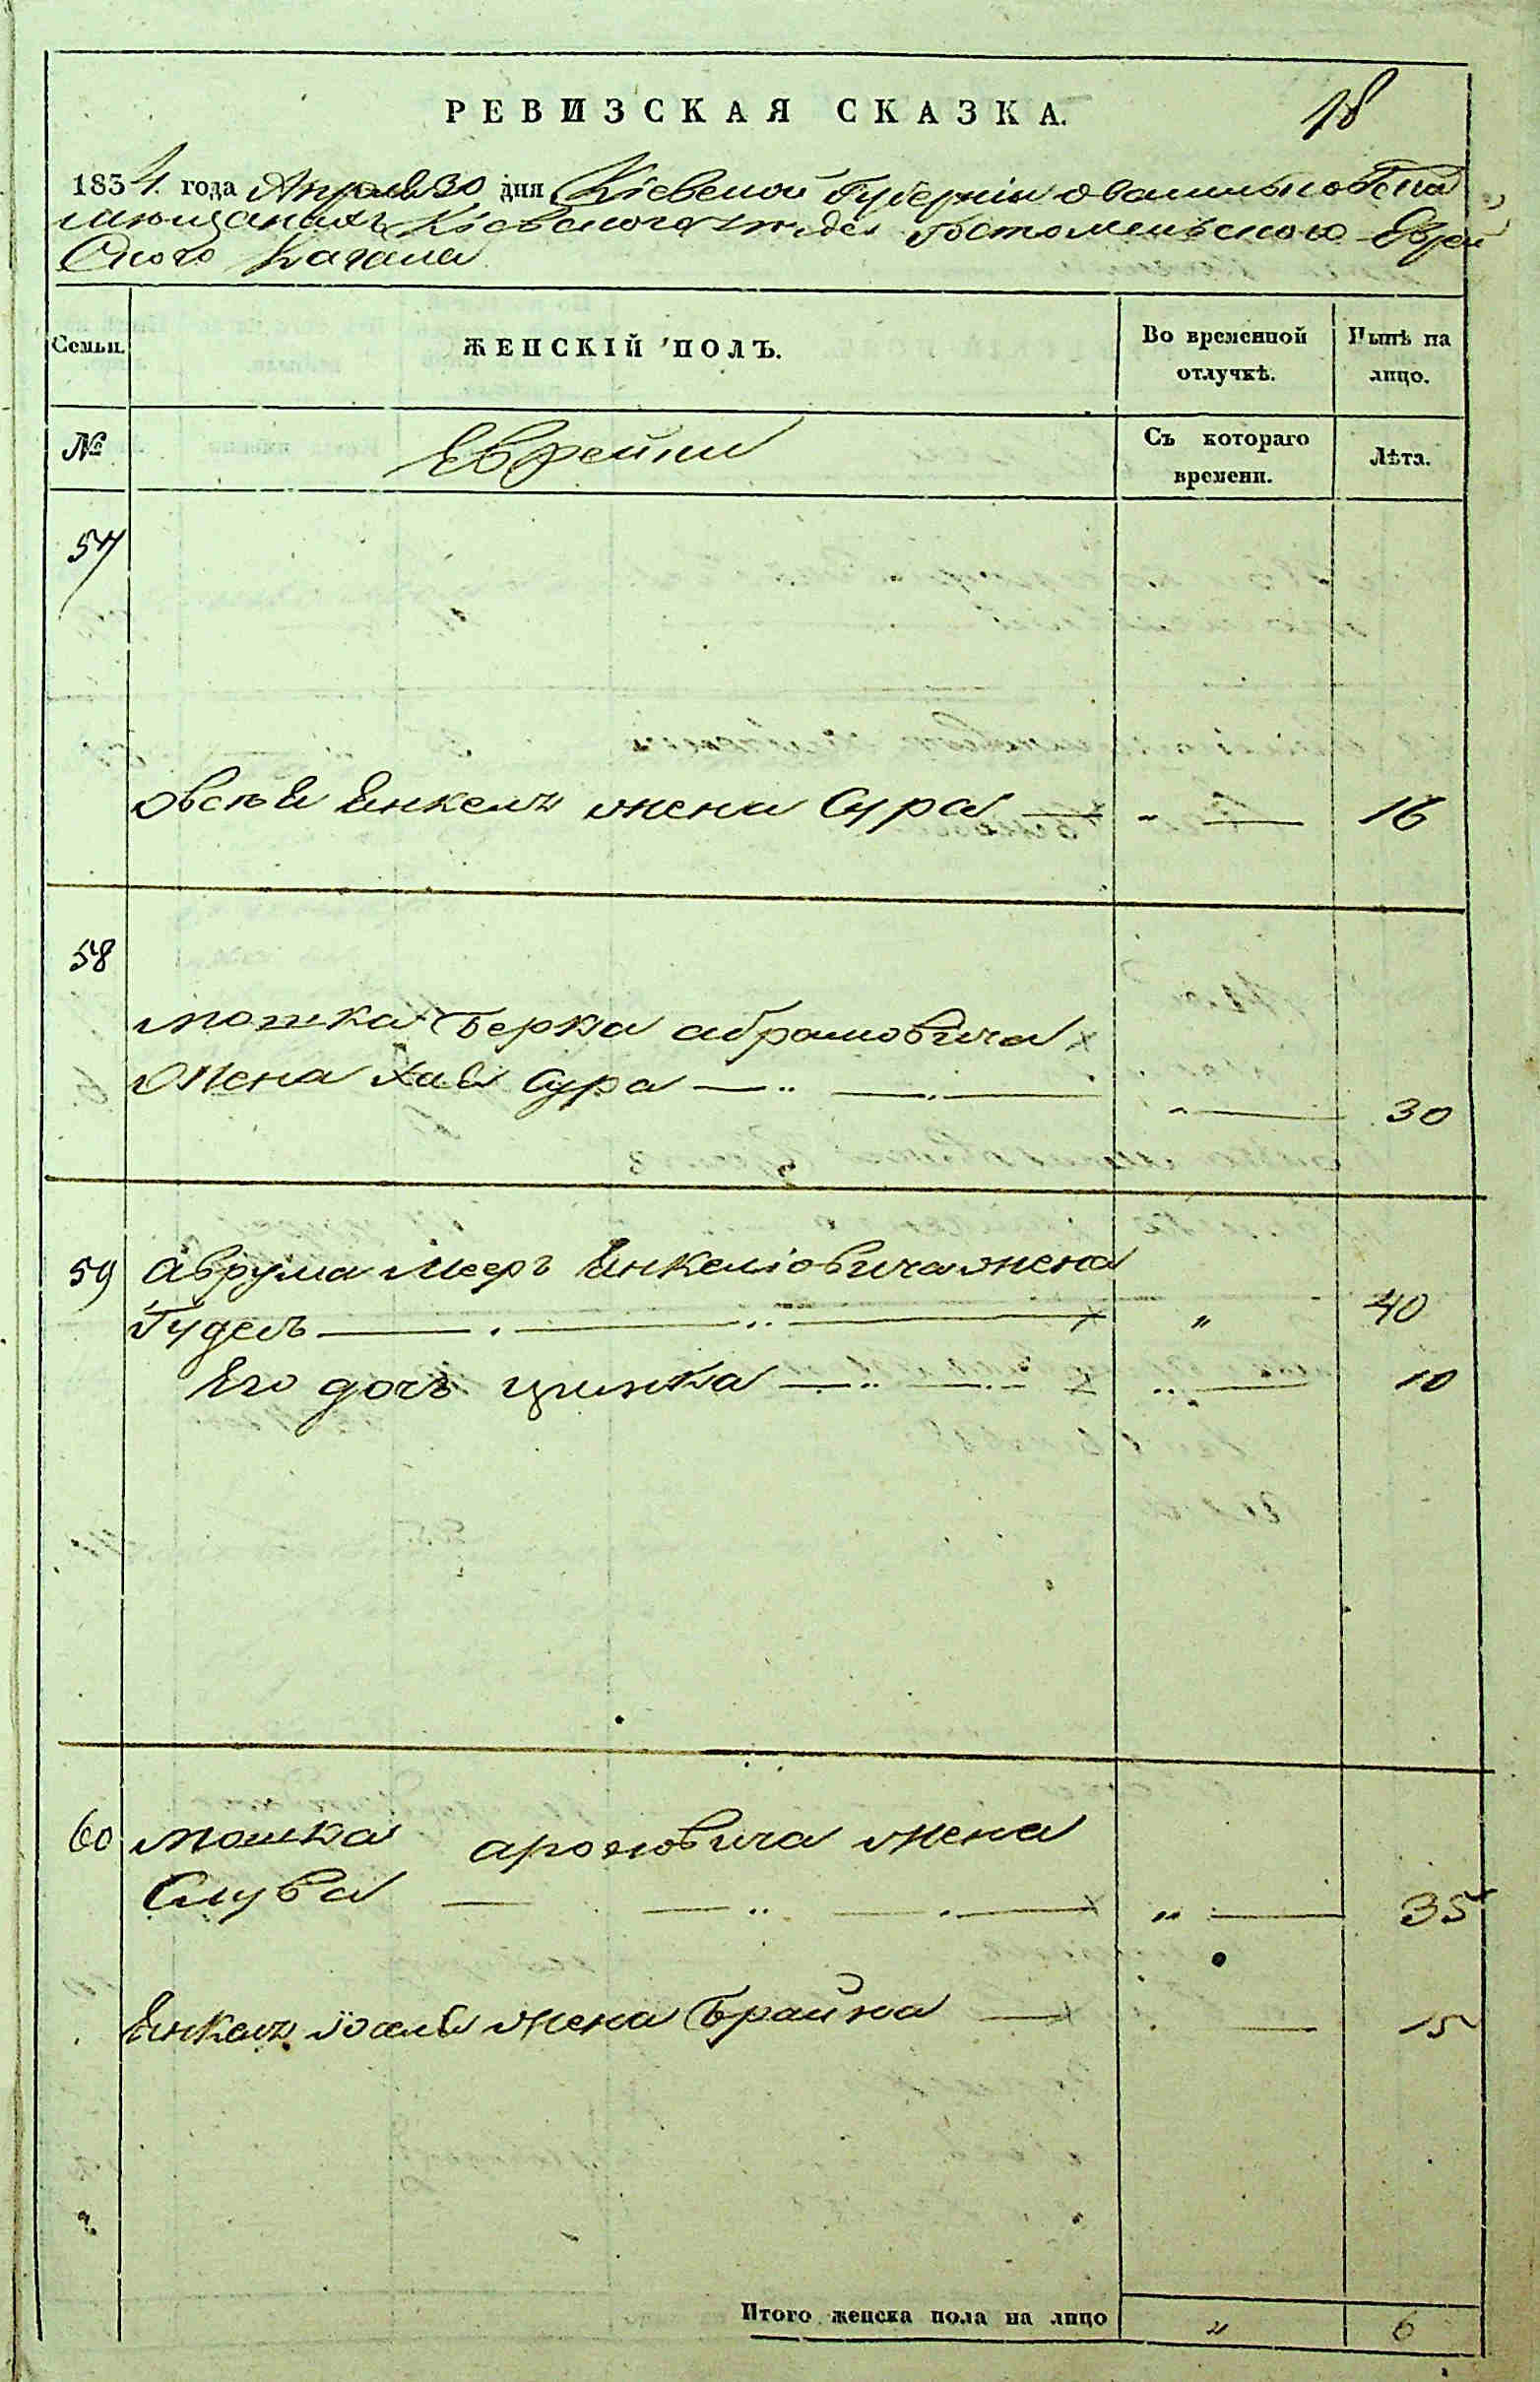 РЕВИЗСКАЯ СКАЗКА.
18
1834 года Апреля 30 дня Кіевской Губерніи о
мещанахъ Кіевского уезда Гостомельского Еврей
ского кагала
Семьи.
ЖЕНСКІЙ ПОЛЪ.
Во временной отлучкѣ.
Нынѣ на лицо.
№
Еврейки
Съ котораго времени.
Лѣта.
57
Овсѣй Енкель жена Сура — „ — 16
58
Мошка Берка абрамовича
жена Хая Сура — „ — 30
59 аврума Меер Енкелiовича жена
Гудель — „ 40
Его дочь ципка — „ — 10
60 Мошка ароновича жена
Слува — „ — 35
Енкель жена Брайна — 15
Итого женска пола на лицо „ 6